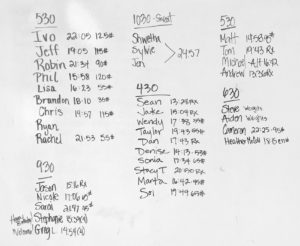 530
Ivo 22:05 125#
Jeff 19:05 115#
Robin 20:34 90#
Phil 15:58 120#
Lisa 16:23 55#
Brandon 18:10 35#
Chris 19:57 115#
Ryan
Rachel 21:53 55#
930
Jason 15:16 Rx
Nicole
Sarah
Stephanie
Greg L.
1030 - Sweat
Shwetha
Sylvie 24:57
Jen
430
Sean 13:28 Rx
Jake 15:09 Rx
Wendy 17:38 35#
Taylor 19:43 55#
Dan 17:43 Rx
Denise 14:13 53#
Sonia 17:34 65#
Stacy T 20:50 Rx
Marta 16:42 45#
Sri 19:49 65#
530
Matt 14:58
Tom 19:43 Rx
Michael
Andrew 13:36 Rx
630
Steve Weights
Aidan Weights
Cameron 22:25 95#
Heather